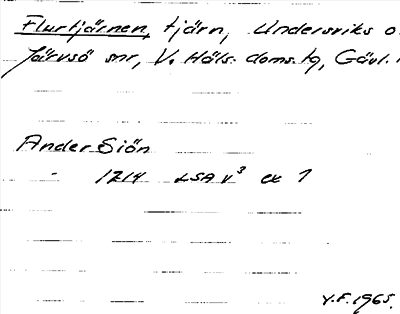 Flurtjärnen, tjärn, Undersviks o.
Järvsö snr, V. Häls. doms. tg, Gävl.
Ander Siön
- 1214 LSA V³ ex 1
V.F. 1965.